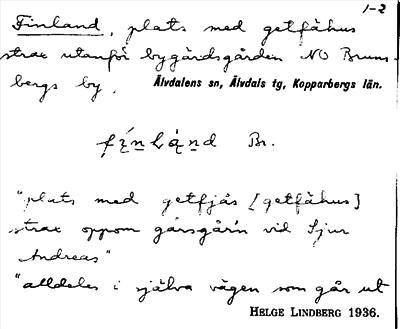 1-2
Finland, plats med getfähus
strax utanför bygärdsgården NO Bruns-
bergs by, Älvdalens sn, Älvdals tg, Kopparbergs län.
Br.
"plats med getfjås [getfähus]
strax oppom gårsgår'n vid Sjur
Andreas"
"alldeles i själva vägen som går ut
HELGE LINDBERG 1936.